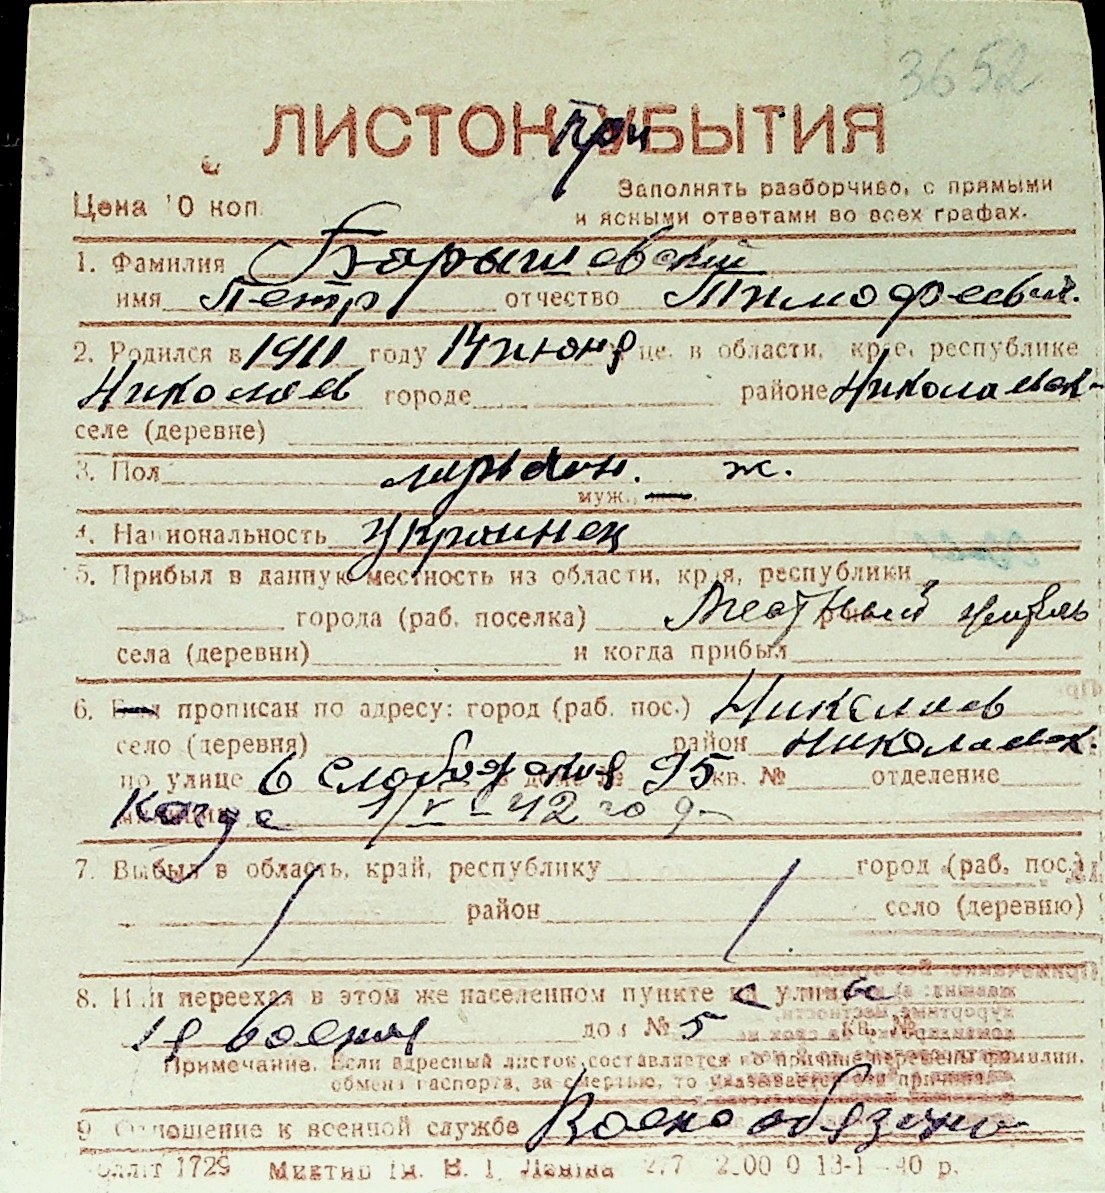 3652
ЛИСТОК при УБЫТИЯ
Цена 10 коп.
Заполнять разборчиво, с прямыми
и ясными ответами во всех графах.
1. Фамилия Барышевский
имя Петр отчество Тимофеевич.
2. Родился в 1911 году 14 июня це, в области, крае, республике
Николаев городе районе Николаевск-
селе (деревне)
3. Пол мужчин. ж.
муж., жен.
4. Национальность Украинец
5. Прибыл в данную местность из области, края, республики
города (раб. поселка) Местный житель
села (деревни) и когда прибыл
6. Был прописан по адресу: город (раб. пос.) Николаев
село (деревня) район Николаевск.
по улице 6 слободская доме № 95 кв. № отделение
милиции Когда 1/V-42 год-
7. Выбыл в область, край, республику город (раб. пос.)
район село (деревню)
8. Или переехал в этом же населенном пункте на улицу с
1я военная дом № 5 кв. №
Примечание. Если адресный листок составляется по причине перемены фамилии,
обмена паспорта, за смертью, то указывается эта причина.
9. Отношение к военной службе Военнообязано
Оллiт 1729 Миктип iм. В. I. Ленiна 277 200 0 13-1-40 р.